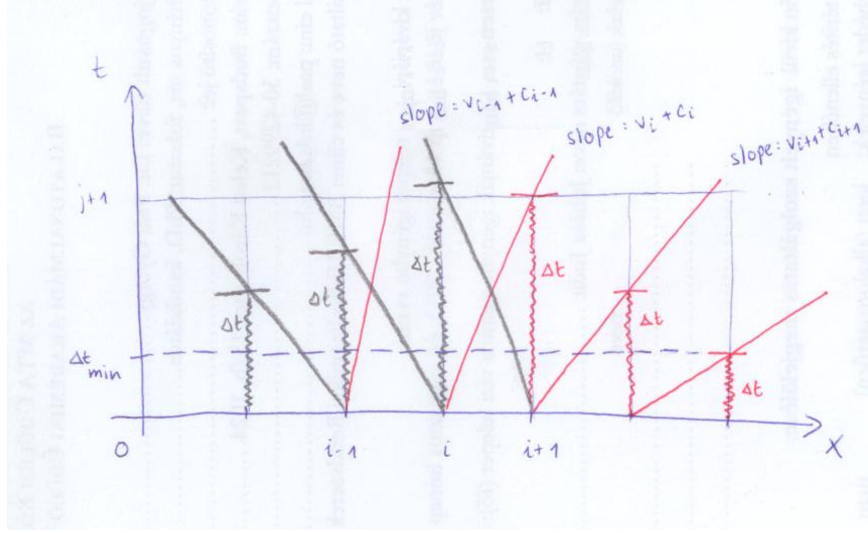 t
slope: v_{i-1} + c_{i-1}
slope: v_i + c_i
slope: v_{i+1} + c_{i+1}
j+1
Δt
Δt
Δt
Δt
Δt
Δt
Δt_min
0
i-1
i
i+1
X